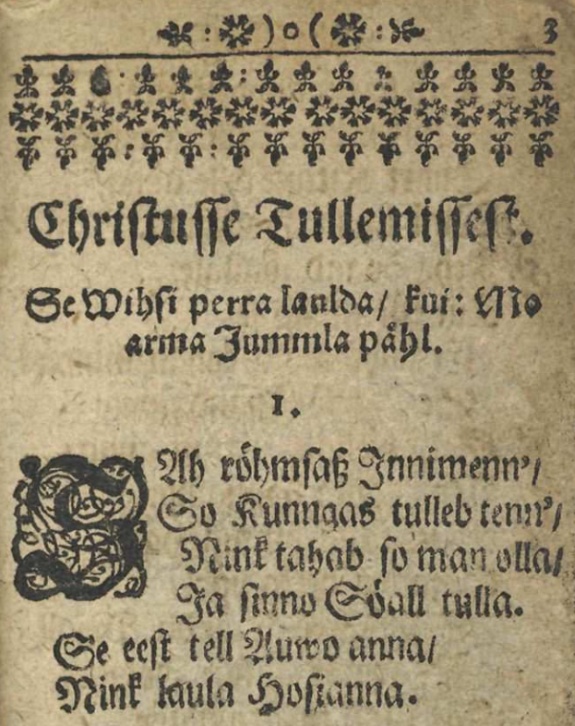 3
Christusse Tullemissest.
Se Wihsi perra laulda/ kui: Mo
arma Jummla pähl.
1.
SAh röhmsaß Innimenn'/
So Kunngas tulleb tenn'/
Nink tahab so man olla/
Ja sinno Söall tulla.
Se eest tell Auwo anna/
Nink laula Hosianna.